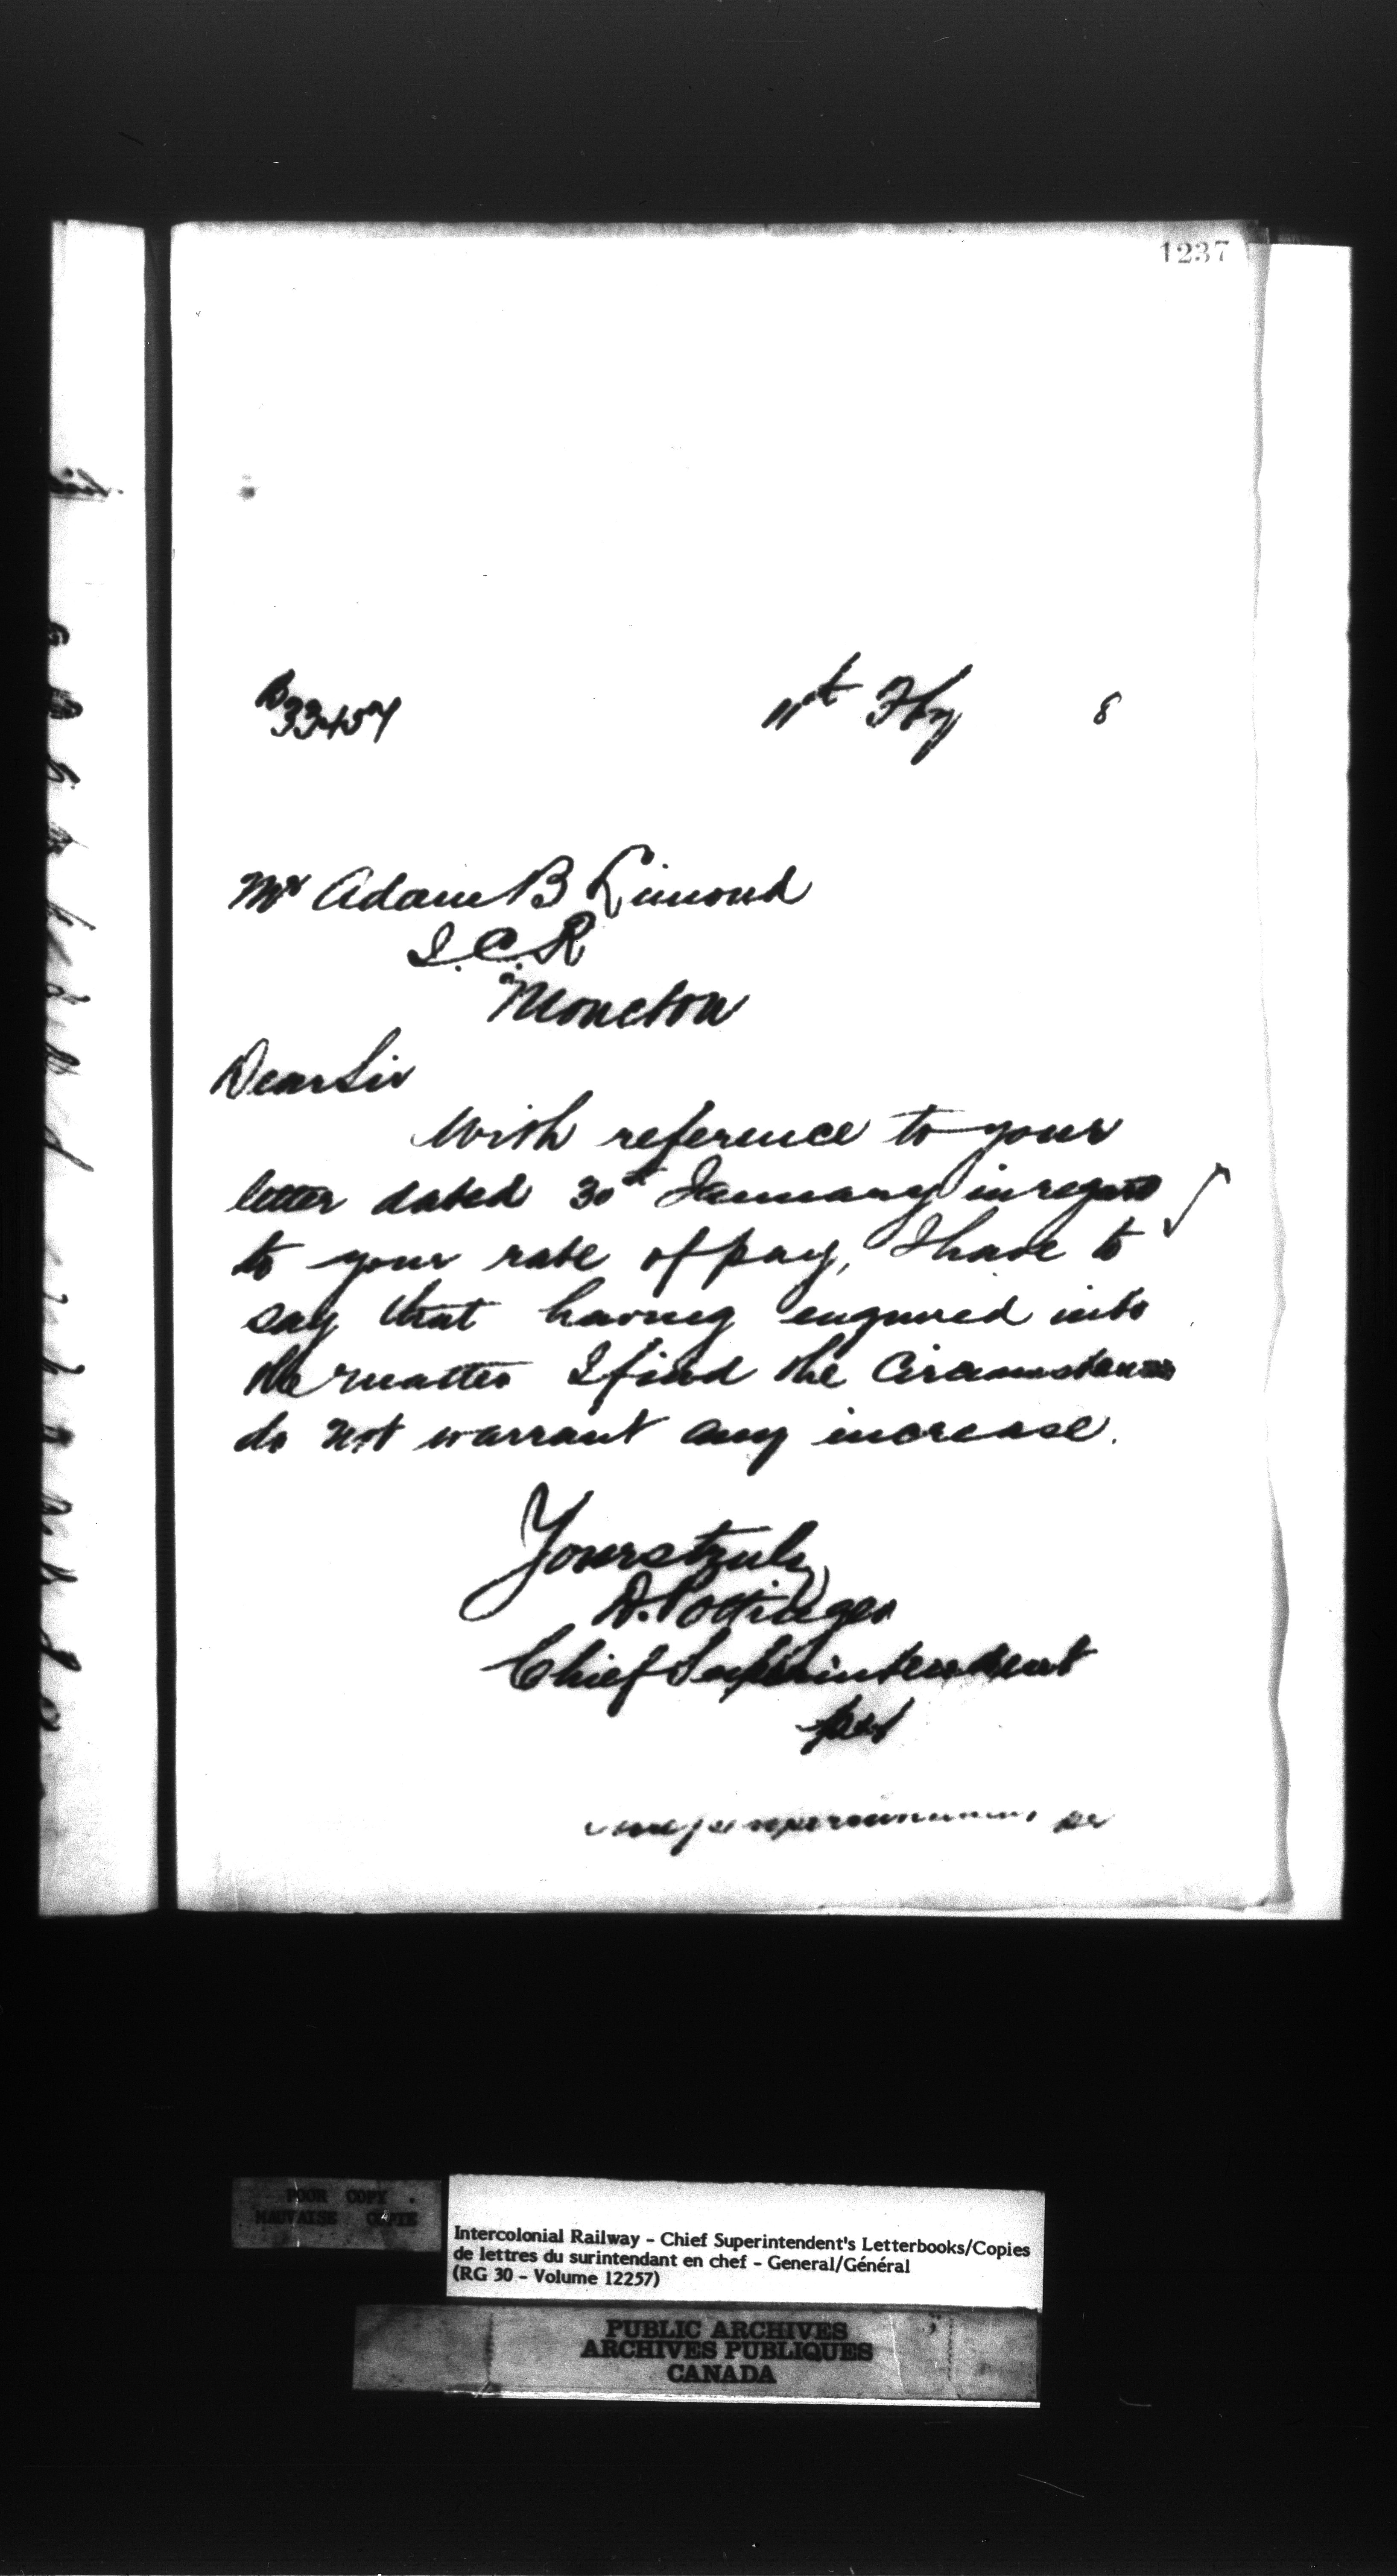 1237
33457
11th Fby 8
Mr Adam B Limond
I.C.R
Moncton
Dear Sir
With reference to your
letter dated 30th January in regard
to your rate of pay, I have to
say that having enquired into
the matter I find the Circumstances
do not warrant any increase.
Yours truly
D. Pottinger
Chief Superintendent
POOR COPY
MAUVAISE COPIE
Intercolonial Railway - Chief Superintendent's Letterbooks/Copies
de lettres du surintendant en chef - General/Général
(RG 30 - Volume 12257)
PUBLIC ARCHIVES
ARCHIVES PUBLIQUES
CANADA